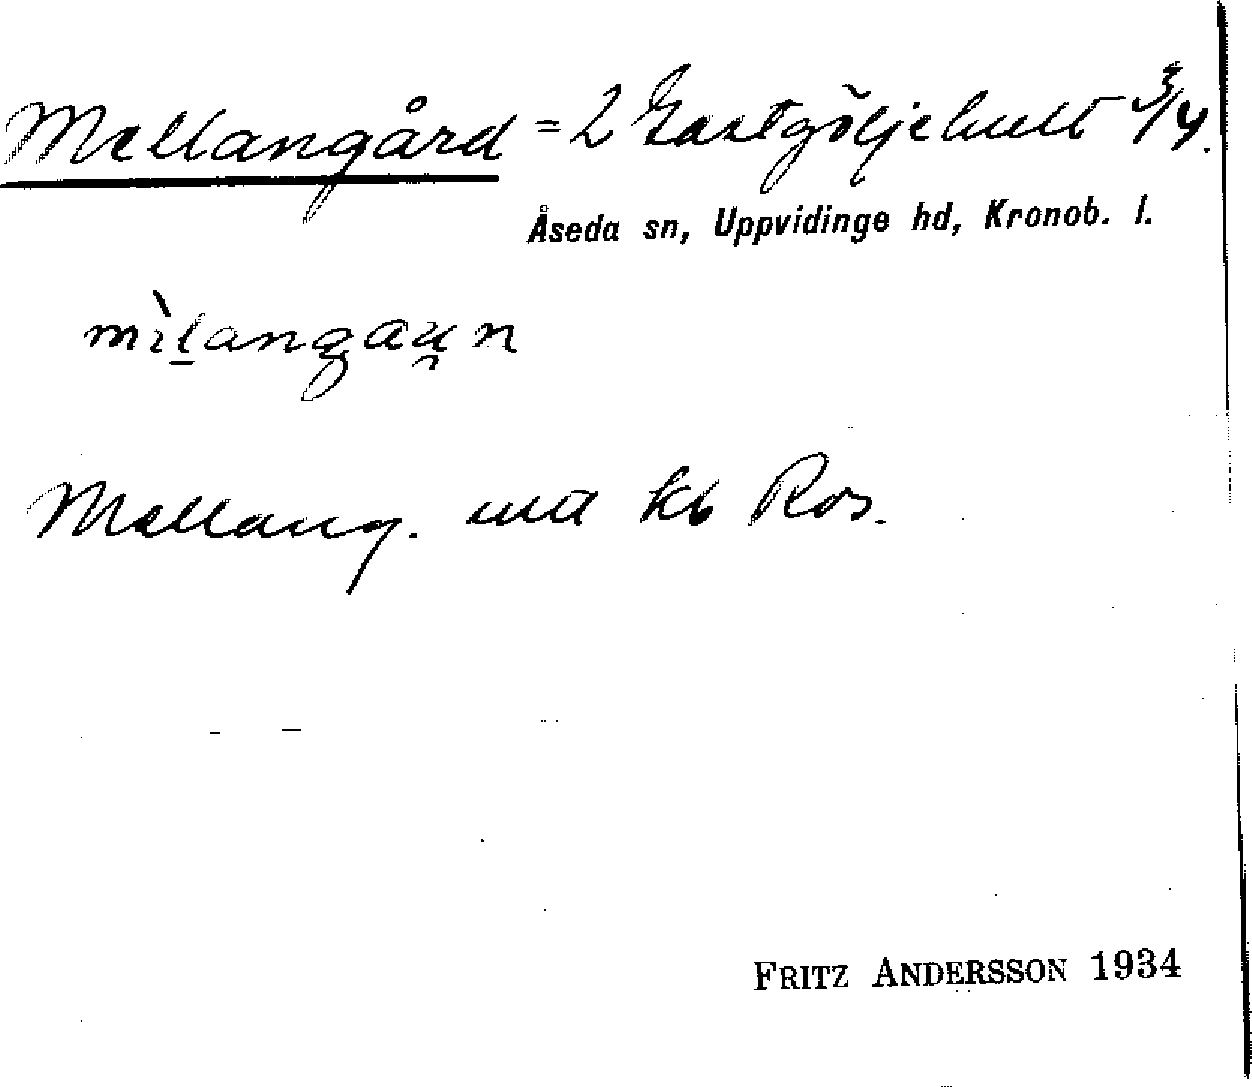 Mellangård = 2 Gastgöljehult 3/4.
Åseda sn, Uppvidinge hd, Kronob. l.
mìlangau̯n
Mellang. utä kb Ros.
FRITZ ANDERSSON 1934